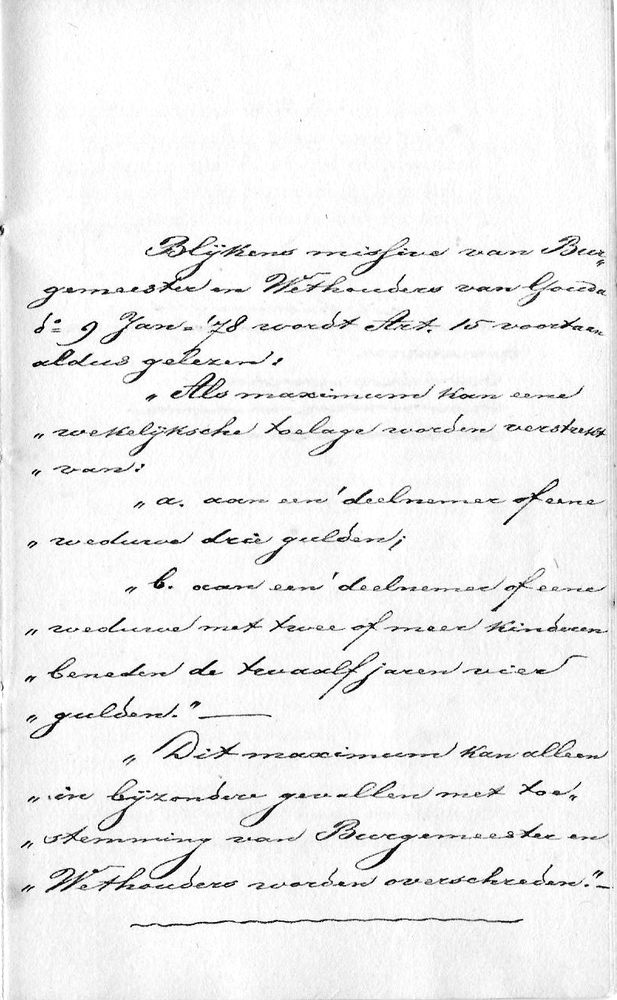 Blijkens missive van Bur„
gemeester en Wethouders van Gouda
do 9 Jan= '78 wordt Art. 15 voortaan
aldus gelezen:
„ Als maximum kan eene
„ wekelijksche toelage worden verstrekt
„ van:
„ a. aan een deelnemer of eene
„ weduwe drie gulden;
„ b. aan een deelnemer of eene
„ weduwe met twee of meer kinderen
„ beneden de twaalf jaren vier
„ gulden." —
„ Dit maximum kan alleen
„ in bijzondere gevallen met toe„
„ stemming van Burgemeester en
„ Wethouders worden overschreden." —